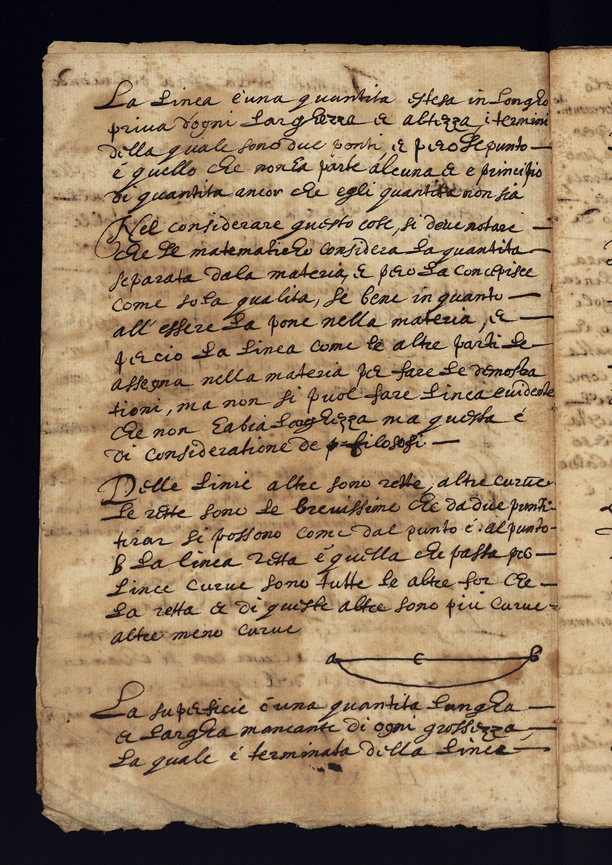 La Linea è una quantita estesa in Longho
priva d'ogni Larghezza et altezza i termini
della quale sono due ponti, et pero Le punto
è quello che non ha parte alcuna et e principio
di quantita ancor che egli quantita non sia
Nel considerare queste cose, si deve notare
che Le matematicho considera La quantita
separata dala materia, e pero La concepisce
come sola qualita, se bene in quanto
all'essere La pone nella materia, et
percio La Linea come le altre parti Le
assegna nella materia per fare Le demostra
tioni, ma non si puol fare Linea evidente
che non habia Larghezza ma questa é
di consideratione de filosofi
Delle Linie altre sono rette, altre curve
Le rette sono Le brevissime che da due punti
tirar si possono come dal punto é al punto
b La linea retta é quella che passa per
Linee curve sono tutte Le altre for che
La retta et di queste altre sono piu curve
altre meno curve
a c b
La superficie è una quantita Lungha
et Largha mancante di ogni grossezza,
La quale é terminata della Linee